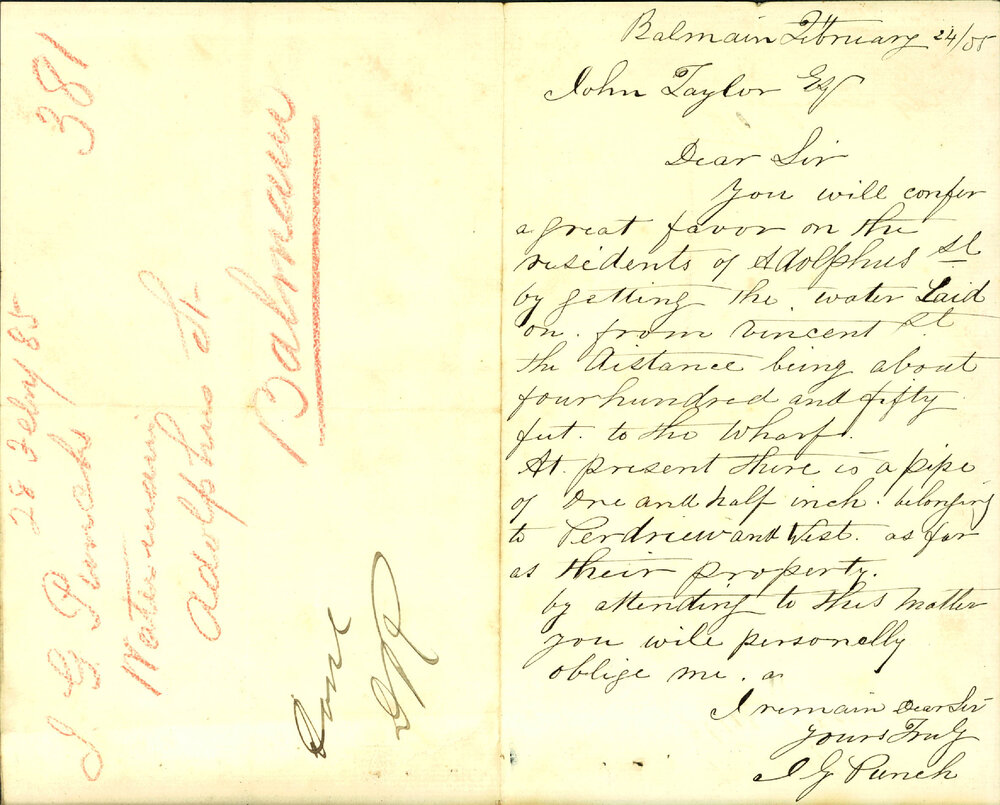 381
28 Feby 85
J G Punch
Water-main
Adolphus St
Balmain
Done
Balmain February 24/85
John Taylor Esq
Dear Sir
You will confer
a great favor on the
residents of Adolphus St
by getting the water Laid
on. from Vincent St
the distance being about
four hundred and fifty
feet. to the Wharf.
At. present there is a pipe
of One and half inch. belonging
to Perdriew and West. as far
as their property.
by attending to this matter
you will personally
oblige me. as
I remain Dear Sir
Yours Truly
J G Punch